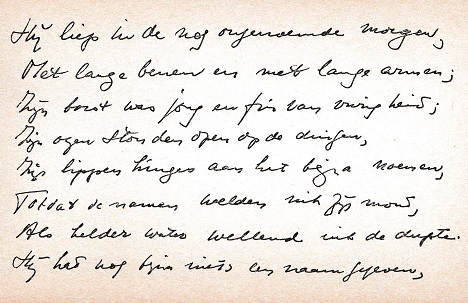 Hij liep in de nog ongenoemde morgen,
Met lange benen en met lange armen;
Zijn borst was jong en fris van vurigheid;
Zijn ogen stonden open op de dingen,
Zijn lippen hingen aan het bijna noemen,
Totdat de namen welden uit zijn mond,
Als helder water wellend uit de diepte.
Hij had nog bijna niets een naam gegeven,